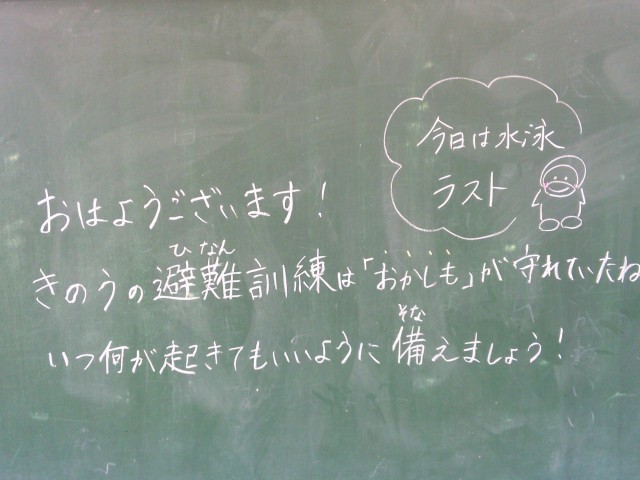 今日は水泳
ラスト
おはようございます!
ひなん
きのうの避難訓練は「おかしも」が守れていたね
そな
いつ何が起きてもいいように備えましょう!